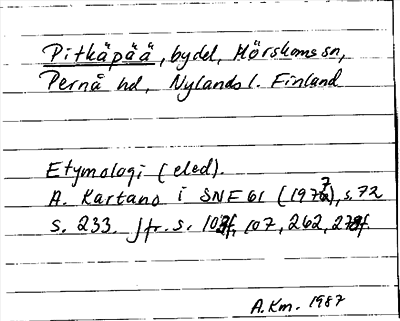 Pitkäpää, bydel, Mörskoms sn,
Pernå hd, Nylands l. Finland
Etymologi (eled).
A. Kartano i SNE 61 (1977), s. 72
s. 233. Jfr. s. 107, 262,
A.Km. 1987